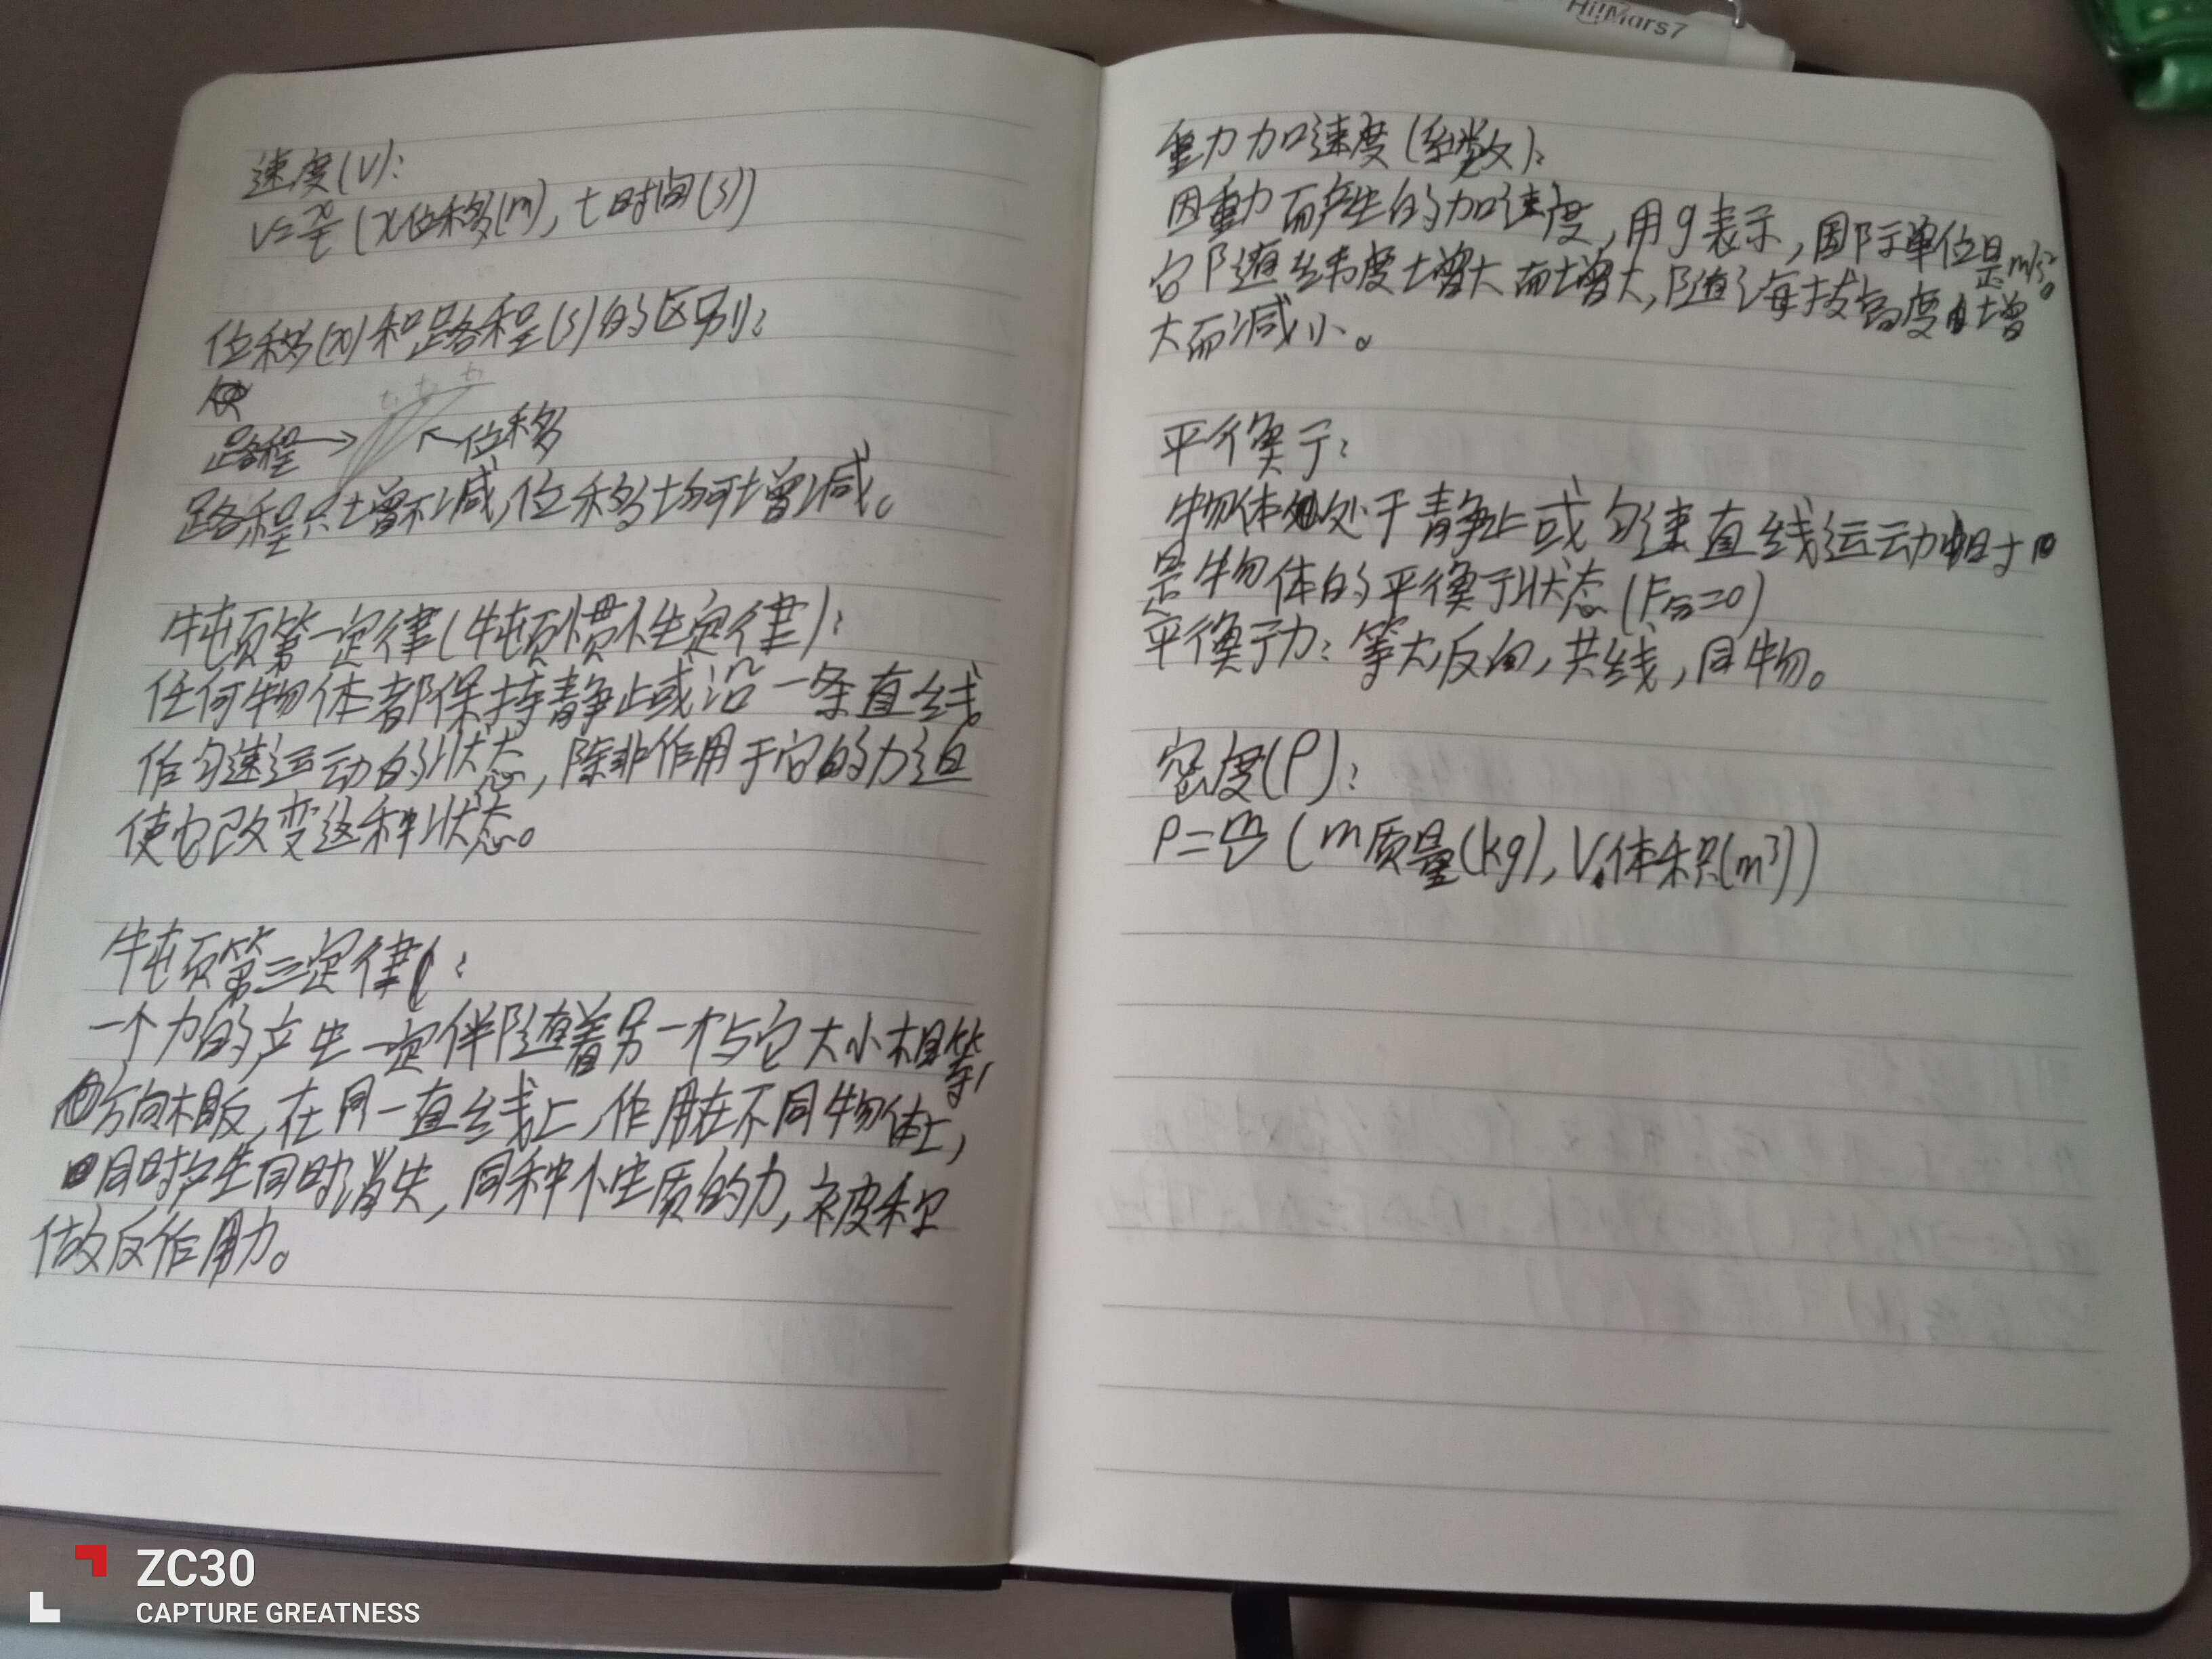 Hi!Mars7
速度(V):
V=x/t (x位移(m), t时间(s))
位移(x)和路程(s)的区别:
t₁ t₂ t₃
路程→ ←位移
路程只增不减,位移均可增减。
牛顿第一定律(牛顿惯性定律):
任何物体都保持静止或沿一条直线
作匀速运动的状态,除非作用于它的力迫
使它改变这种状态。
牛顿第三定律:
一个力的产生一定伴随着另一个与它大小相等,
方向相反,在同一直线上,作用在不同物体上,
同时产生同时消失,同种性质的力,被称
做反作用力。
重力加速度(系数):
因重力而产生的加速度,用g表示,国际单位是m/s²。
它随纬度增大而增大,随海拔高度增
大而减小。
平衡:
物体处于静止或匀速直线运动时
是物体的平衡状态(F合=0)
平衡力:等大,反向,共线,同物。
密度(ρ):
ρ=m/V (m质量(kg),V体积(m³))
ZC30
CAPTURE GREATNESS